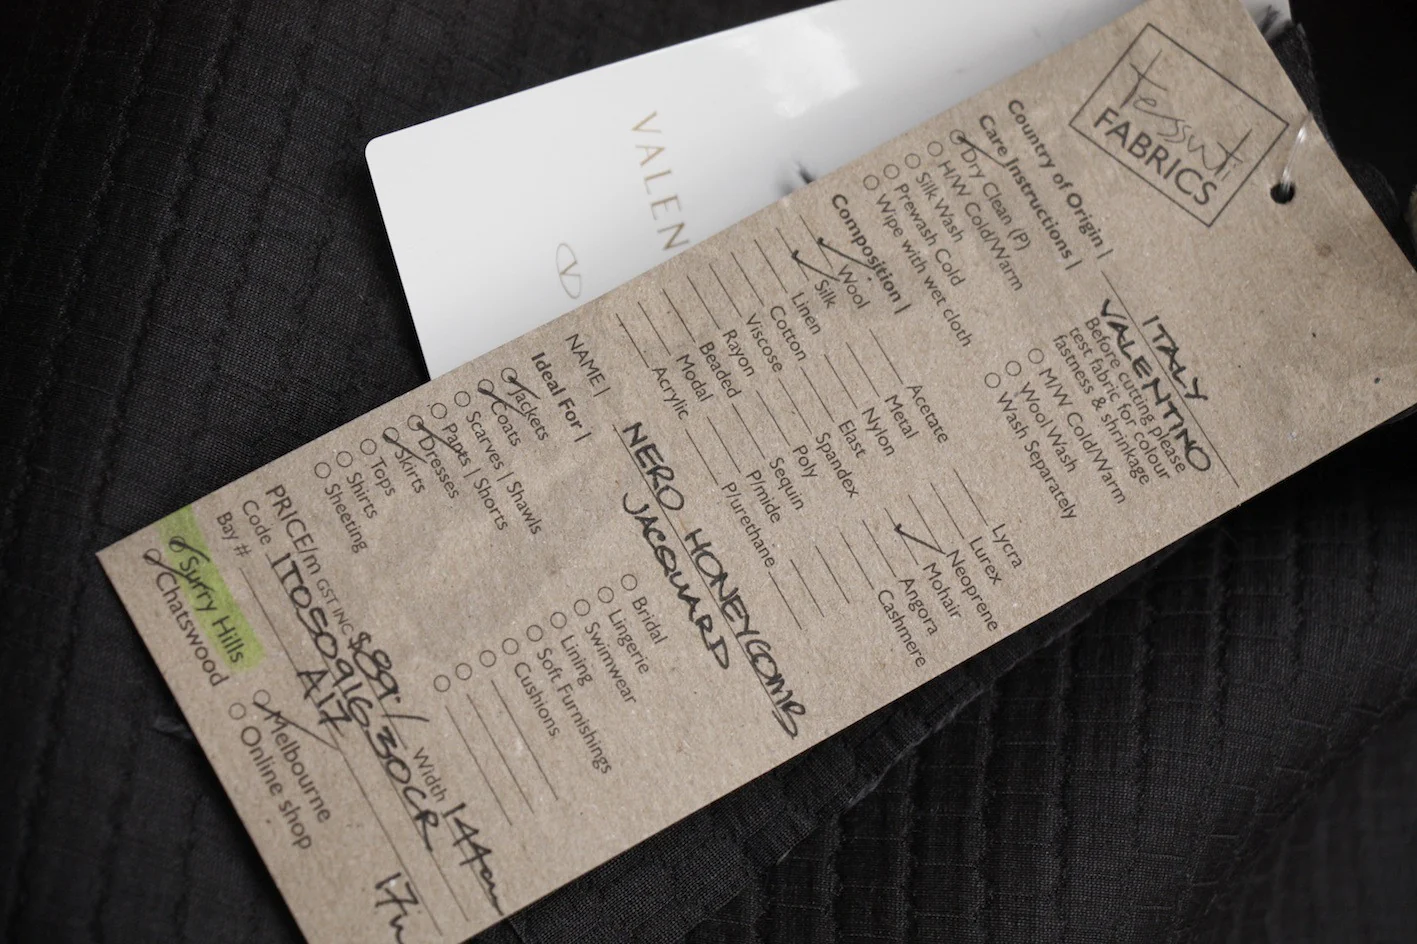 VALEN
V
tessuti
FABRICS
Country of Origin | ITALY
VALENTINO
Care Instructions |
Before cutting please
test fabric for colour
fastness & shrinkage
Dry Clean (P)
H/W Cold/Warm
Silk Wash
Prewash Cold
Wipe with wet cloth
M/W Cold/Warm
Wool Wash
Wash Separately
Composition |
Wool
Silk
Linen
Cotton
Viscose
Rayon
Beaded
Modal
Acrylic
Acetate
Metal
Nylon
Elast
Spandex
Poly
Sequin
P/mide
P/urethane
Lycra
Lurex
Neoprene
Mohair
Angora
Cashmere
NAME | NERO HONEYCOMB
JACQUARD
Ideal For |
Jackets
Coats
Scarves | Shawls
Pants | Shorts
Dresses
Skirts
Tops
Shirts
Sheeting
Bridal
Lingerie
Swimwear
Lining
Soft Furnishings
Cushions
PRICE/m GST INC $89/ Width 144cm
Code ITOSO91630CR
Bay # A17
17
Surry Hills
Chatswood
Melbourne
Online shop